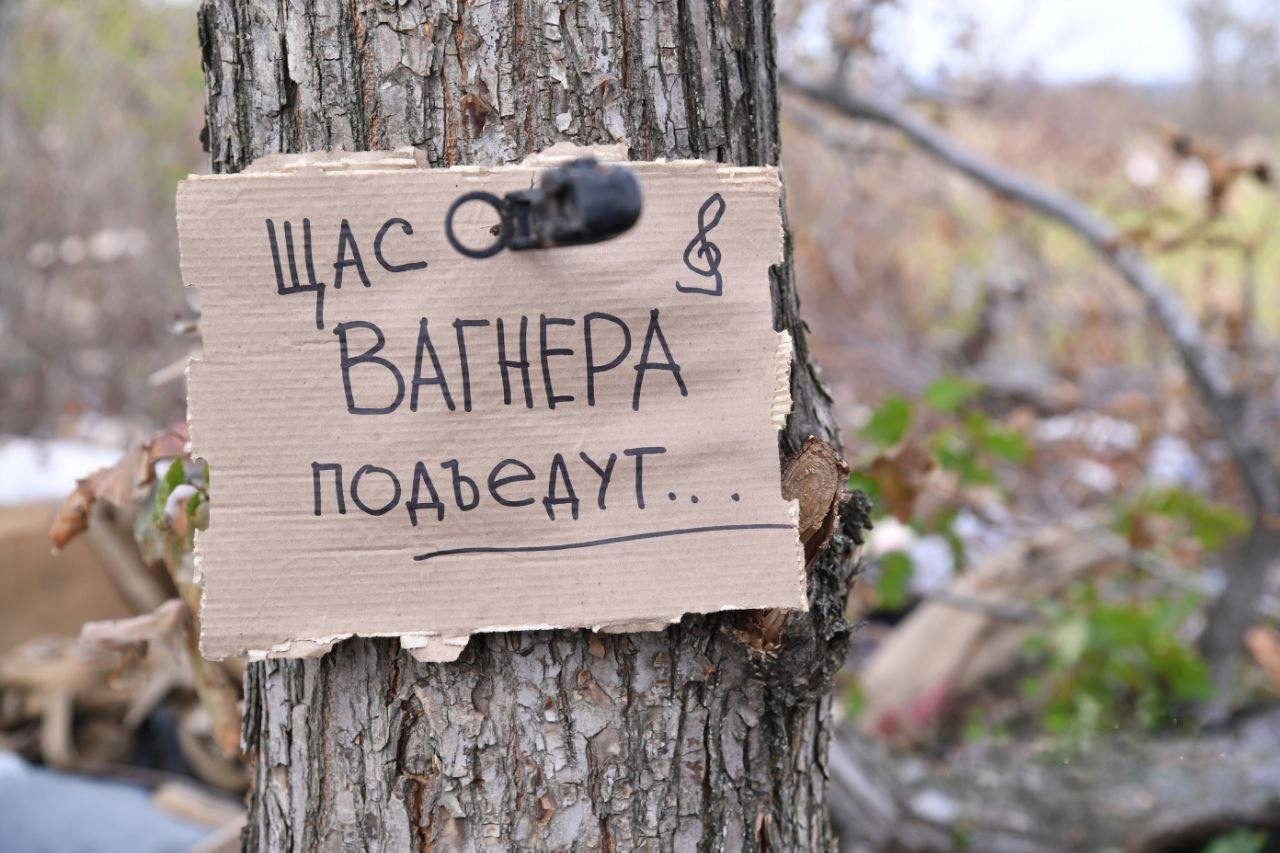 ЩАС
ВАГНЕРА
подъедут...